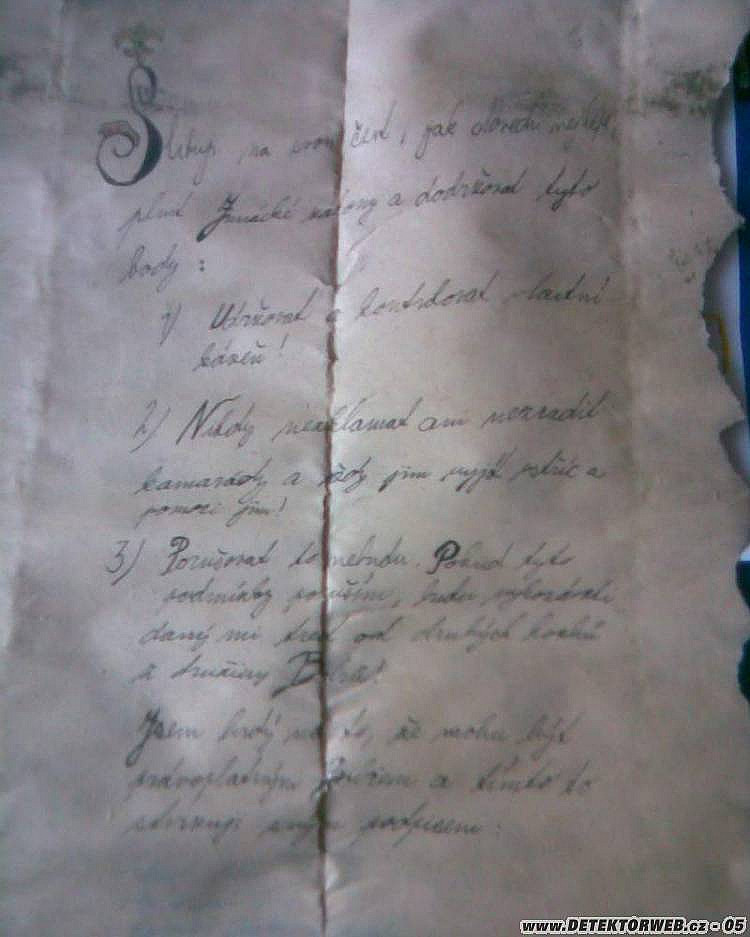 Slibuji, na svou čest, jak dovedu nejlépe,
plnit Junácké zákony a dodržovat tyto
body:
1) Udržovat a kontrolovat vlastní
kázeň!
2) Nikdy nezklamat ani nezradit
kamarády a vždy jim vyjít vstříc a
pomoci jim!
3) Porušovat to nebudu. Pokud tyto
podmínky poruším, budu vykonávati
daný mi trest od druhých hochů
z družiny
Jsem hrdý na to, že mohu být
právoplatným a tímto to
stvrzuji svým podpisem:
www.DETEKTORWEB.cz - 05